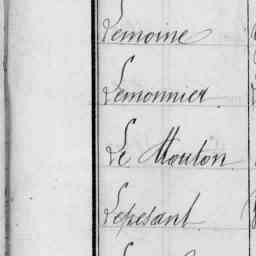 Lemoine
Lemonnier
Le Mouton
Lepesant